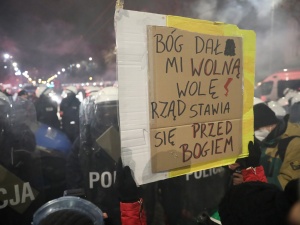 BÓG DAŁ
MI WOLNĄ
WOLĘ!
RZĄD STAWIA
SIĘ PRZED
BOGIEM
CJA
POLI
POLI